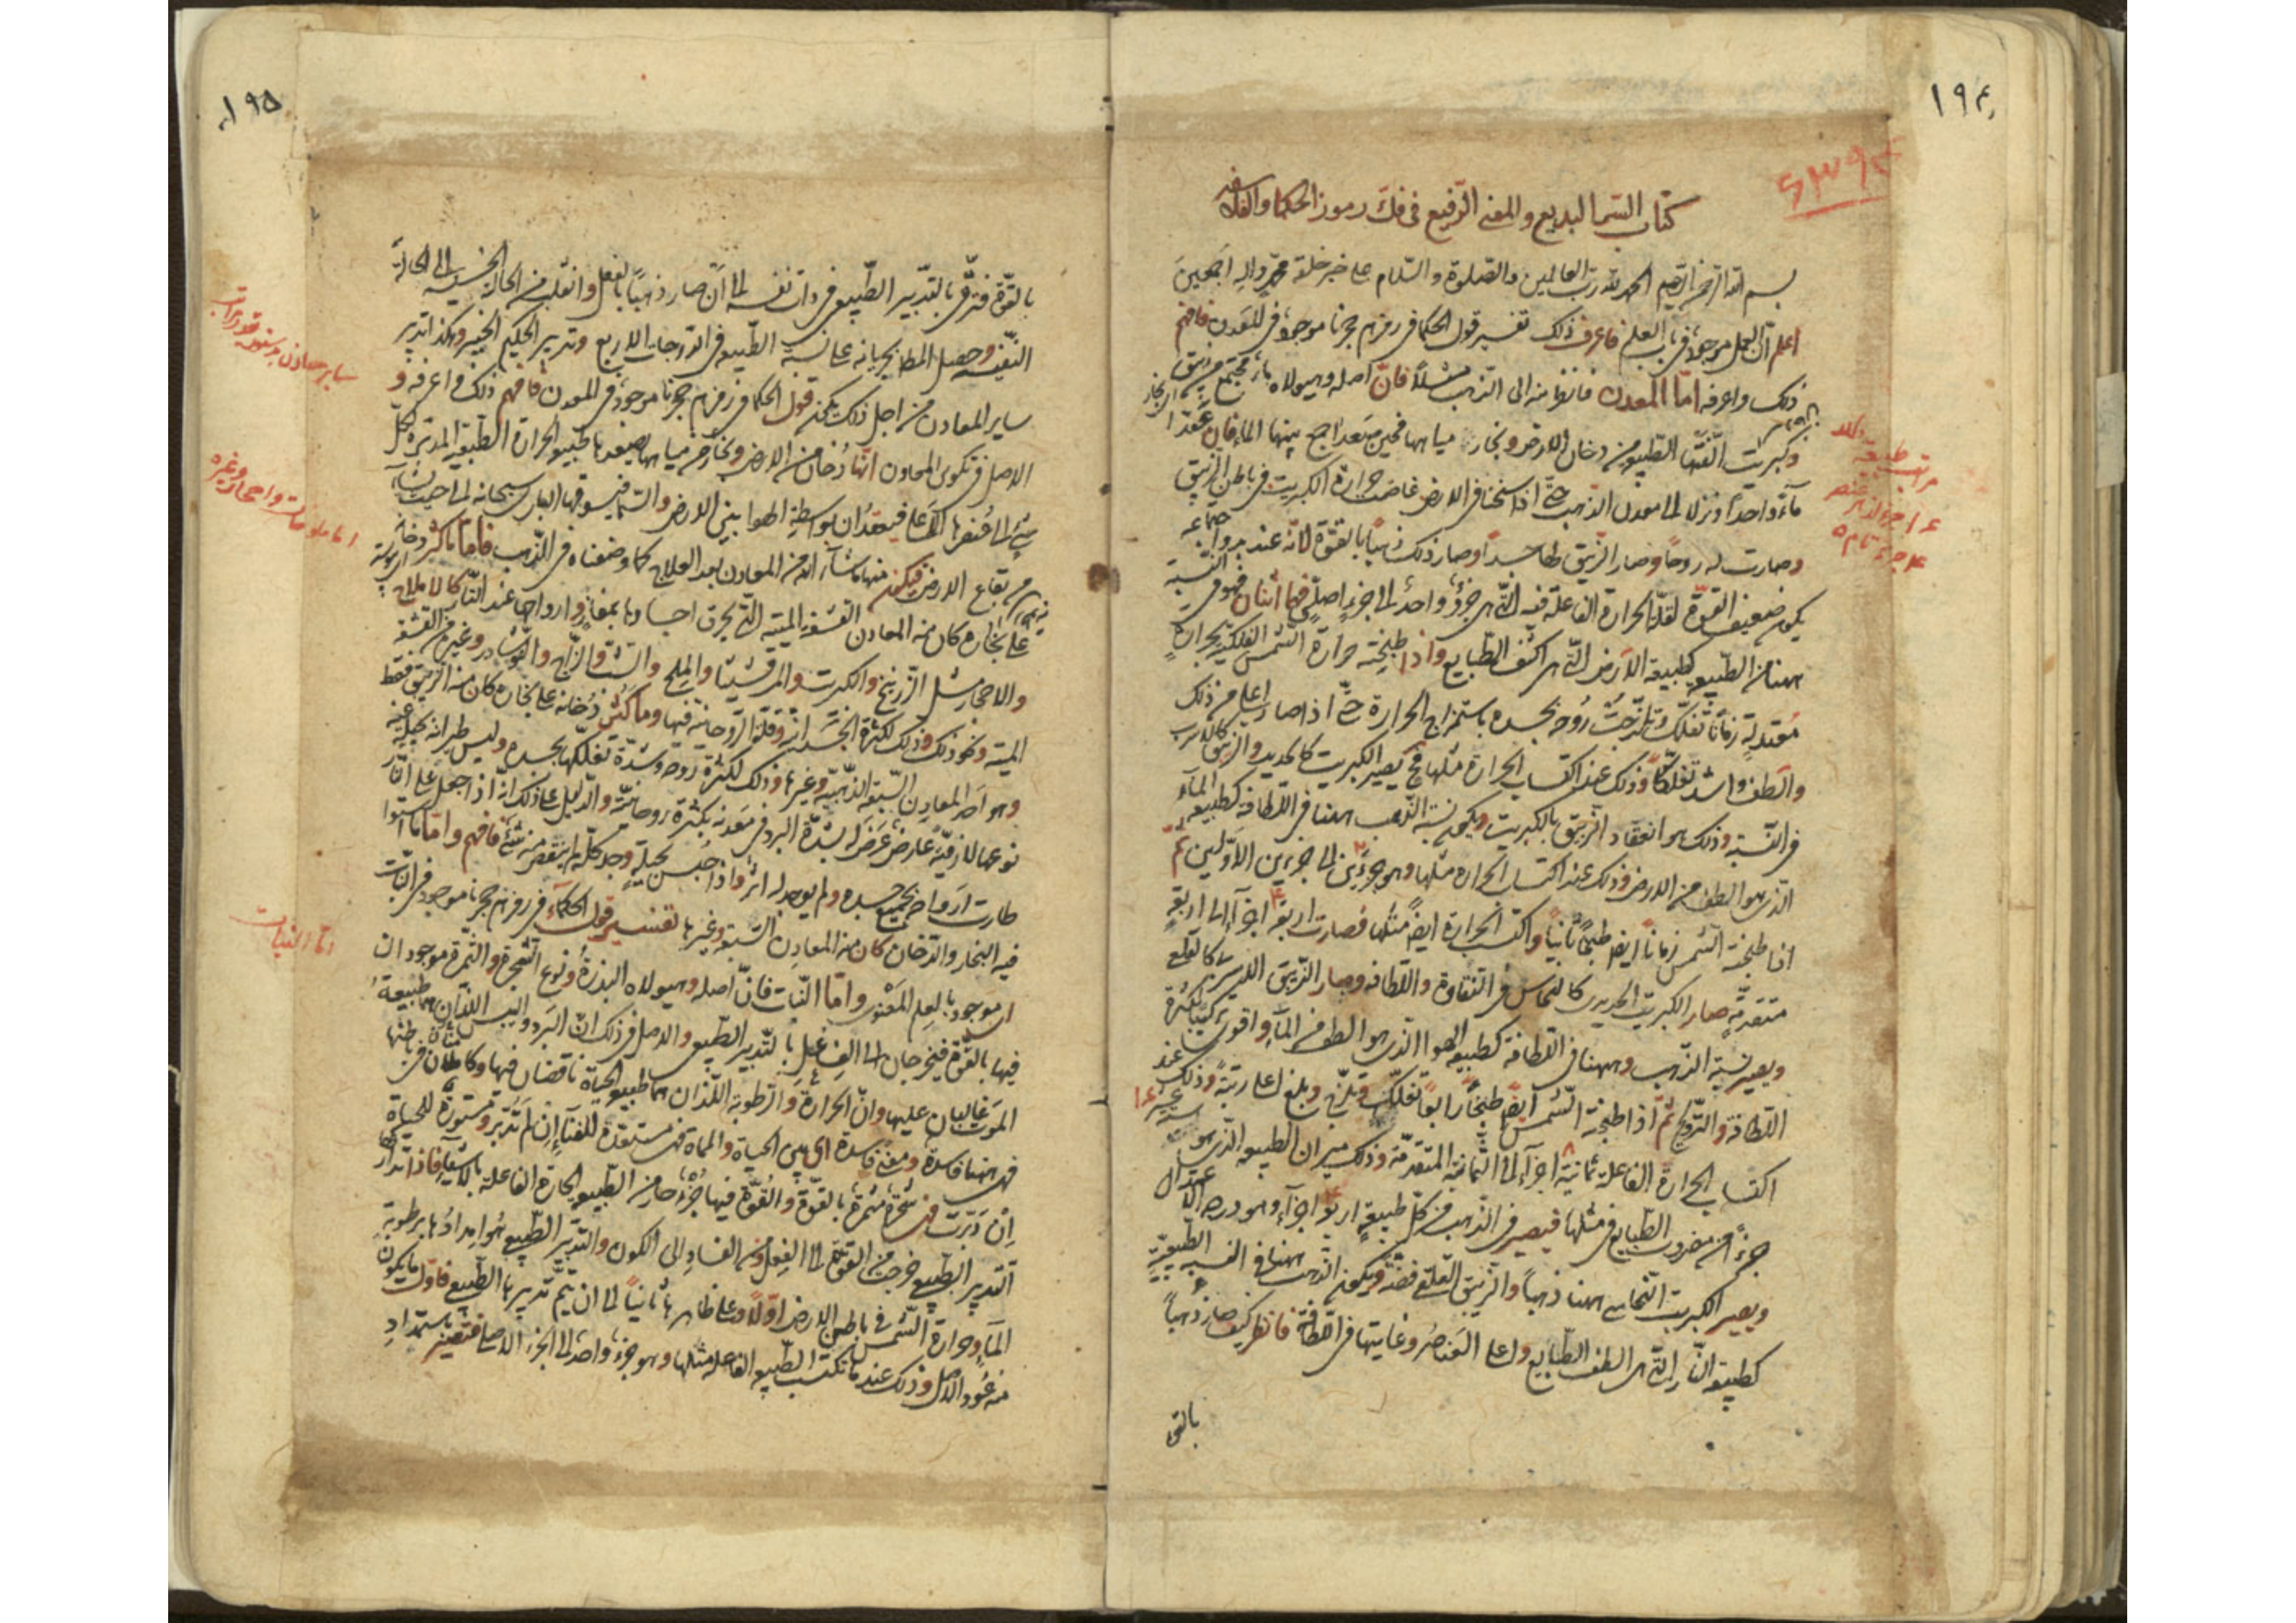 ١٩٤
كتاب السر البديع والمعنى الرفيع فى فك رموز الحكما والفلاسفه
بسم الله الرحمن الرحيم الحمد لله رب العالمين والصلوة والسلام على خير خلقه محمد واله اجمعين
اعلم ان العمل موجود فى باب العلم فاعرف ذلك تفسير قول الحكما فى رمزهم حجرنا موجود فى المعدن فافهم
ذلك واعرفه اما المعدن فانظر منه الى الذهب مثلاً فان اصله وهيولاه ماء مجتمع من زيبق
وكبريت الفتها الطبيعه من دخان الارض وبخار مياهها فحين صعدا جمع بينهما الماء فان عقدا
مآءً واحداً ونزلا الى معدن الذهب حتى اذا سخنا فى الارض غاضت حرارة الكبريت فى باطن الزيبق
وصارت له روحاً وصار الزيبق لها جسداً وصار ذلك ذهباً بالقوة لانه عند بدو اجتماعه
يكون ضعيف القوة لقلة الحرارة الفاعلة فيه التى هى جزؤ واحد الى جزء اصلى فهما اثنان فهو فى النسبة
ههنا من الطبيعه كطبيعة الارض التى هى اكثف الطبايع واذا طبخته حرارة الشمس الفلكية بحرارة
معتدلة زماناً تفلك وتلزجت روحه بجسده باستمزاج الحرارة حتى اذا صار اعلى من ذلك
والطف واشد تفلكاً وذلك عند اكتساب الحرارة مثلها فح يصير الكبريت كالحديد والزيبق كالاسرب
فى النسبة وذلك هو انعقاد الزيبق بالكبريت ويكون نسبة الذهب ههنا فى اللطافة كطبيعة المآء
الذى هو الطف من الارض وذلك عند اكتساب الحراره مثلها وهو جزءين الى جزءين الاولين ثم
اذا طبخته الشمس زماناً ايضاً طبخاً ثانياً واكتسب الحرارة ايضاً مثلها فصارت اربعة اجزآء الى اربعة
متقدمة صار الكبريت الحديدى كالنحاس فى النقاوة واللطافه وصار الزيبق الاسربى كالقلعى
ويصير نسبة الذهب وههنا فى اللطافة كطبيعة الهوا الذى هو الطف من المآء واقوى تركيباً لكثرة
اللطافة والتزويج ثم اذا طبخته الشمس ايضاً طبخاً رابعاً تفلك وتلزج وبلغ اعلى رتبة وذلك عند
اكتساب الحرارة الفاعلة ثمانية اجزآء الى الثمانية المتقدمة وذلك ميزان الطبيعه الذى هو ستة عشر
جزءاً من مضروب الطبايع فى مثلها فيصير فى الذهب من كل طبيعة اربعة اجزآء وهو درجة الاعتدال
ويصير الكبريت النحاسى ههنا ذهباً والزيبق القلعى فضة ويكون الذهب ههنا فى النسبة الطبيعية
كطبيعة النار التى هى الطف الطبايع واعلى العناصر وغايتها فى اللطافة فانظر كيف صار ذهباً
بالقوة
١٩٥
بالقوة فترقى بالتدبير الطبيعى فى ذات نفسه الى ان صار ذهباً بالفعل وانقلب من الحالة الخسيسة الى الحالة
النفيسه وحصل المطابجريانه على نسبة الطبيعه فى الدرجات الاربع وتدبير الحكيم الخبير وهكذا تدبير
ساير المعادن فمن اجل ذلك يكون قول الحكما فى رمزهم حجرنا موجود فى المعدن فافهم ذلك واعرفه و
الاصل فى تكوين المعادن انها دُخان من الارض وبخار من مياهها يصعد بطبيعة الحرارة الطبيعية المدبرة لكل
شئ الى عنصرها الاعلى فيعقدان بواسطة الهوا بين الارض والسما فيسوقها البارى سبحانه الى حيث يشآء
من بقاع الارض فيكون منها ماشآء الله من المعادن بعد العلاج كما وصفناه فى الذهب فاما ماكثر دخانه
على بخاره كان منه المعادن القشفة الميتة التى يحرق اجسادها بمفارقة ارواحها عند النار كالاملاح
والاحجار مثل الزرنيخ والكبريت والمرقشيثا والملح والشب والزاج والنوشادر وغيره من القشفه
الميتة ونحو ذلك وذلك لكثرة الجسدانية وقلة الروحانية فيها وما كثر دُخانه على بخاره كان منه الزيبق فقط
وهو احد المعادن السبعة الذهبية وغيرها وذلك لكثرة روحه وشدة تفلكها بجسده وليس طيرانه بجبلية
نوعها لازمة عارض عرض له بشدة البرد فى معدنه بكثرة روحانية والدليل على ذلك انه اذا جعل على النار
طارت ارواحه بجميع جسده ولم يوجد له اثر واذا حُبس بحيلة وجد كله لم ينتقص منه شئ فافهم واما ما استوا
فيه البخار والدخان كان منه المعادن السبعة وغيرها تفسير قول الحكمآء فى رمزهم حجرنا موجود فى النبات
اى موجود بالعلم المعنوى واما النبات فان اصله وهيولاه البذرة ونوع الشجرة والثمرة موجودان
فيها بالقوة فيخرجان الى الفعل بالتدبير الطبيعى والاصل فى ذلك ان البرد واليبس اللذان هما طبيعة
الموت غالبان عليها وان الحرارة والرطوبة اللذان هما طبيعة الحياة ناقصان فيها وكامنان فى باطنها
فهى ههنا فاسدة ومعنى فاسدة اى بين الحياة والمماة فهى مستعدة للفنآء ان لم تُدبر ومستورة للحياة
ان دبرت فهى شجرة مثمرة بالقوة والقوة فيها جزء حار من الطبيعه الحارة الفاعلة بالاشيآء فاذا تدارك
التدبير الطبيعى خرجت من القوة الى الفعل ومن الفساد الى الكون والتدبير الطبيعى هو امدادُها برطوبة
المآء وحرارة الشمس فى باطن الارض اولاً وعلى ظاهرها ثانياً الى ان يتم تدبيرها الطبيعى فاول ما يكون
منه عود الاكل وذلك عندما تكتسب الطبيعه الفاعله مثلها وهو جزء واحد الى الجزء الاصلى فتصير باستمداد
اما النبات